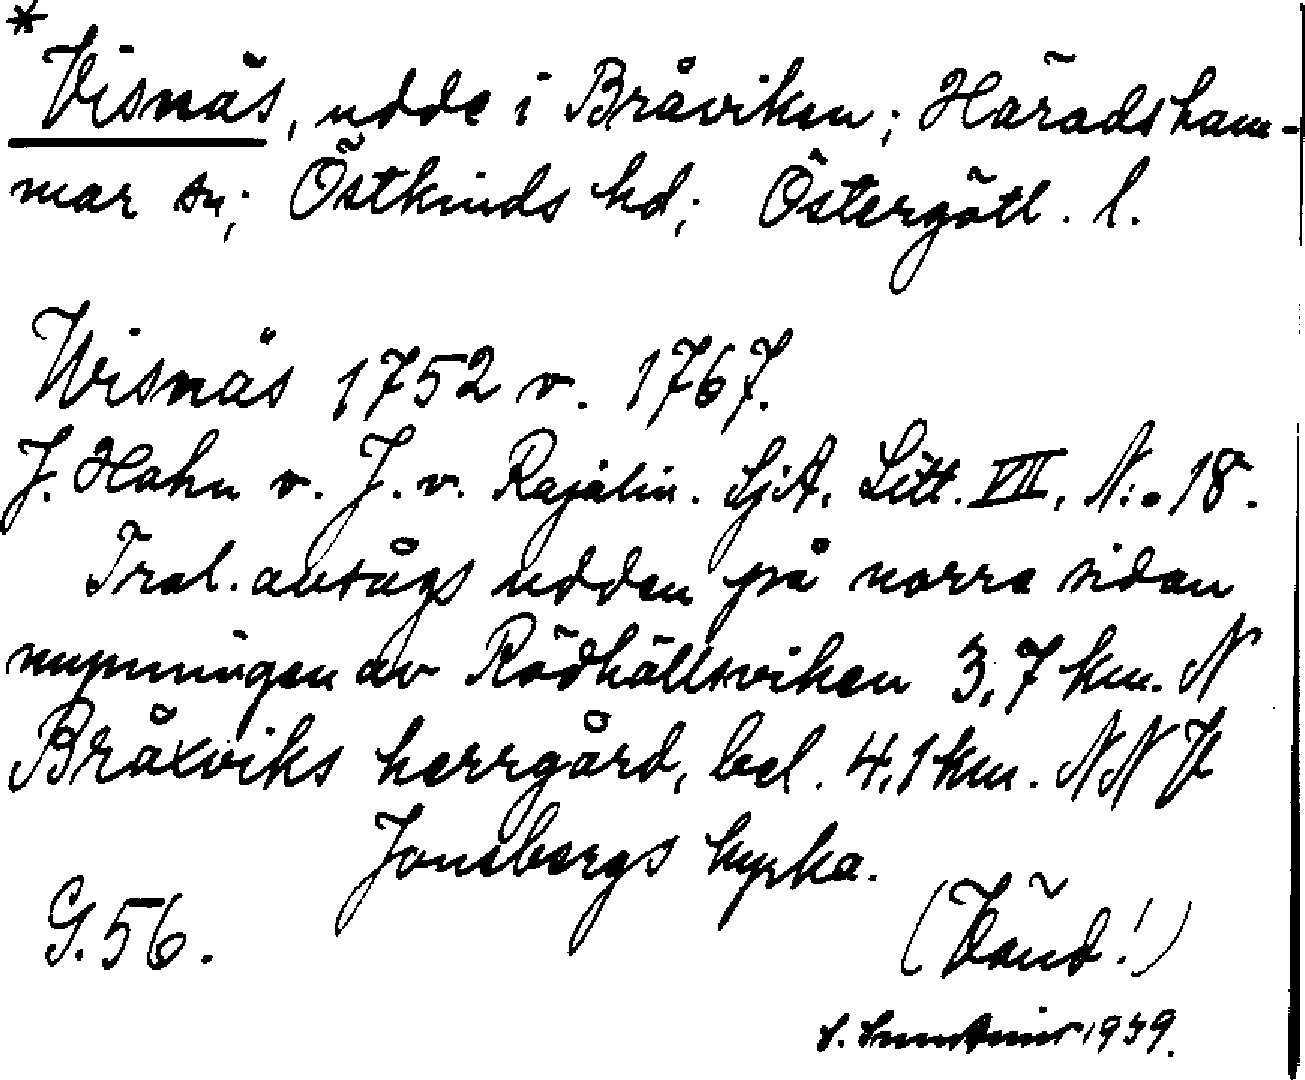 *
Visnäs, udde i Bråviken; Häradsham-
mar sn; Östkinds hd; Östergötl. l.
Wisnäs 1752 v. 1767.
J. Hahn v. J. v. Rajalin. SjA, Litt. VII, N:o 18.
Trol. avsågs udden på norra sidan
mynningen av Rödhällsviken 3,7 km. N
Bråxviks herrgård, bel. 4,1 km. NNV
Jonsbergs kyrka.
G. 56.
(Vänd!)
1939.